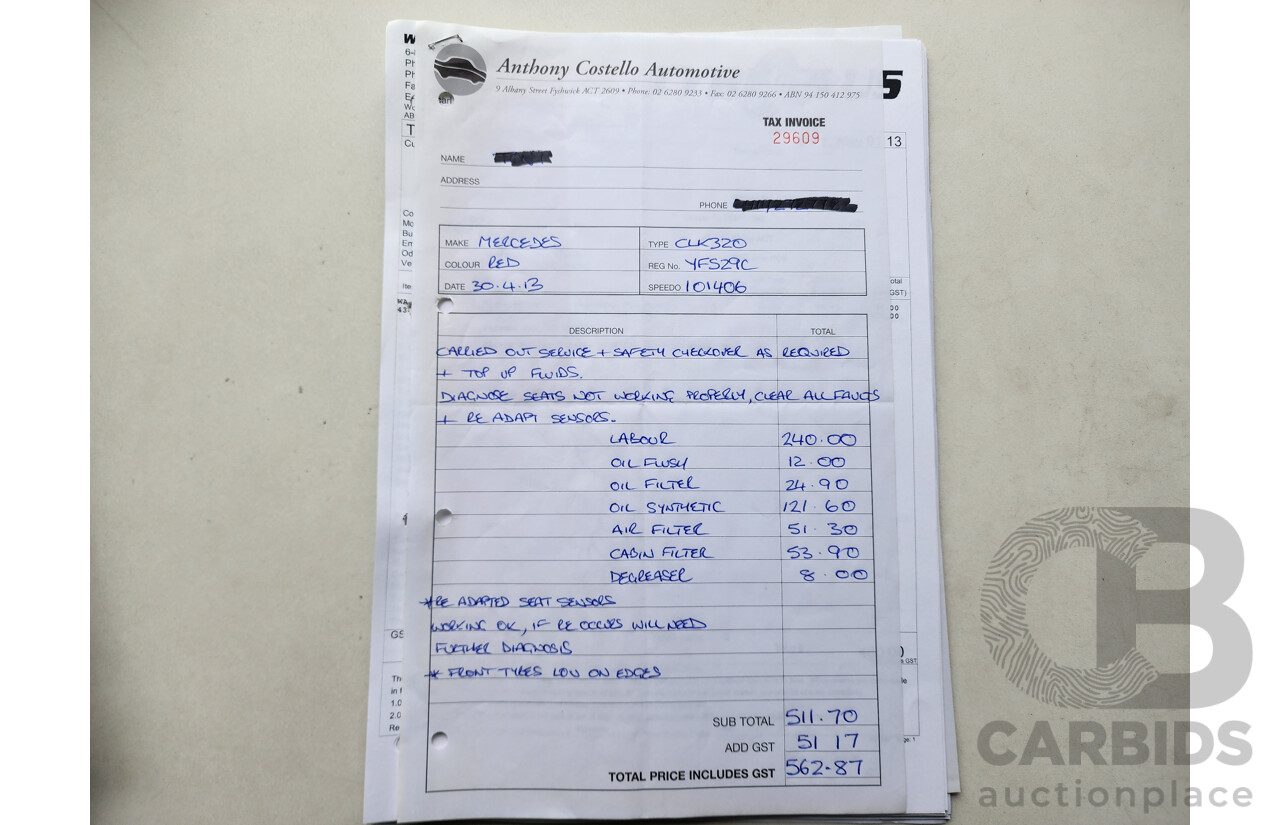 Anthony Costello Automotive
9 Albany Street Fyshwick ACT 2609 • Phone: 02 6280 9233 • Fax: 02 6280 9266 • ABN 94 150 412 975
TAX INVOICE
29609
13
NAME
ADDRESS
PHONE
MAKE MERCEDES TYPE CLK320
COLOUR RED REG No. YFS29C
DATE 30.4.13 SPEEDO 101406
DESCRIPTION TOTAL
CARRIED OUT SERVICE + SAFETY CHECKOVER AS REQUIRED
+ TOP UP FLUIDS.
DIAGNOSE SEATS NOT WORKING PROPERLY, CLEAR ALL FAULTS
+ RE ADAPT SENSORS.
LABOUR 240.00
OIL FLUSH 12.00
OIL FILTER 24.90
OIL SYNTHETIC 121.60
AIR FILTER 51.30
CABIN FILTER 53.90
DEGREASER 8.00
* RE ADAPTED SEAT SENSORS
WORKING OK, IF RE OCCURS WILL NEED
FURTHER DIAGNOSIS
* FRONT TYRES LOW ON EDGES
SUB TOTAL 511.70
ADD GST 51 17
TOTAL PRICE INCLUDES GST 562.87
CARBIDS
auctionplace